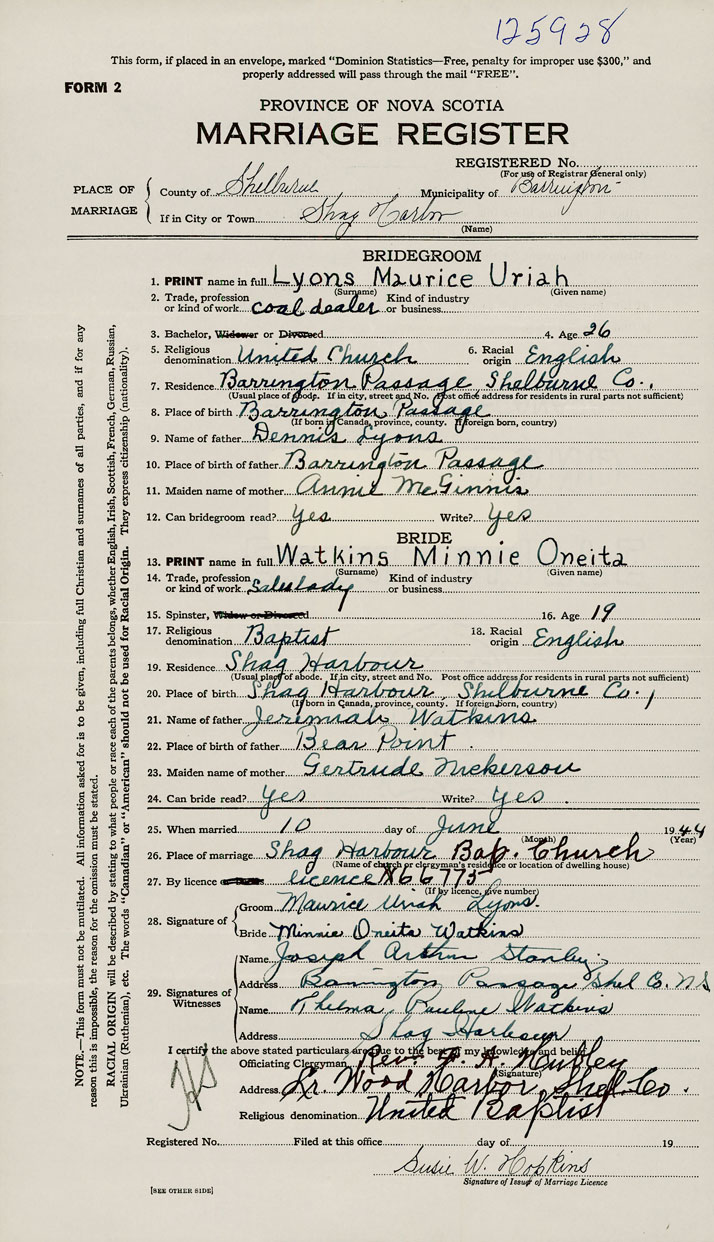 125928
This form, if placed in an envelope, marked "Dominion Statistics—Free, penalty for improper use $300," and
properly addressed will pass through the mail "FREE".
FORM 2
PROVINCE OF NOVA SCOTIA
MARRIAGE REGISTER
REGISTERED No.
(For use of Registrar General only)
PLACE OF MARRIAGE
County of Shelburne Municipality of Barrington
If in City or Town Shag Harbor
(Name)
BRIDEGROOM
1. PRINT name in full Lyons Maurice Uriah
(Surname) (Given name)
2. Trade, profession or kind of work coal dealer Kind of industry or business
3. Bachelor, Widower or Divorced 4. Age 26
5. Religious denomination United Church 6. Racial origin English
7. Residence Barrington Passage Shelburne Co.,
(Usual place of abode. If in city, street and No. Post office address for residents in rural parts not sufficient)
8. Place of birth Barrington Passage
(If born in Canada, province, county. If foreign born, country)
9. Name of father Dennis Lyons
10. Place of birth of father Barrington Passage
11. Maiden name of mother Annie McGinnis
12. Can bridegroom read? Yes Write? Yes
BRIDE
13. PRINT name in full Watkins Minnie Oneita
(Surname) (Given name)
14. Trade, profession or kind of work Saleslady Kind of industry or business
15. Spinster, Widow or Divorced 16. Age 19
17. Religious denomination Baptist 18. Racial origin English
19. Residence Shag Harbour
(Usual place of abode. If in city, street and No. Post office address for residents in rural parts not sufficient)
20. Place of birth Shag Harbour, Shelburne Co.,
(If born in Canada, province, county. If foreign born, country)
21. Name of father Jeremiah Watkins
22. Place of birth of father Bear Point.
23. Maiden name of mother Gertrude Nickerson
24. Can bride read? Yes Write? Yes.
25. When married 10 day of June 1944
(Month) (Year)
26. Place of marriage Shag Harbour Bap. Church
(Name of church or clergyman's residence or location of dwelling house)
27. By licence licence 66775
(If by licence, give number)
28. Signature of
Groom Maurice Uriah Lyons.
Bride Minnie Oneita Watkins
29. Signatures of Witnesses
Name Joseph Arthur Stanley
Address Barrington Passage Shel Co. N S
Name Thelma Pauline Watkins
Address Shag Harbour
I certify the above stated particulars are true to the best of my knowledge and belief.
Officiating Clergyman Rev. F. A. Hubley
(Signature)
Address Lr. Wood Harbor, Shel. Co.
Religious denomination United Baptist
Registered No. Filed at this office day of 19
Susie W. Hopkins
Signature of Issuer of Marriage Licence
[SEE OTHER SIDE]
NOTE.—This form must not be mutilated. All information asked for is to be given, including full Christian and surnames of all parties, and if for any
reason this is impossible, the reason for the omission must be stated.
RACIAL ORIGIN will be described by stating to what people or race each of the parents belongs, whether English, Irish, Scottish, French, German, Russian,
Ukrainian (Ruthenian), etc. The words "Canadian" or "American" should not be used for Racial Origin. They express citizenship (nationality).